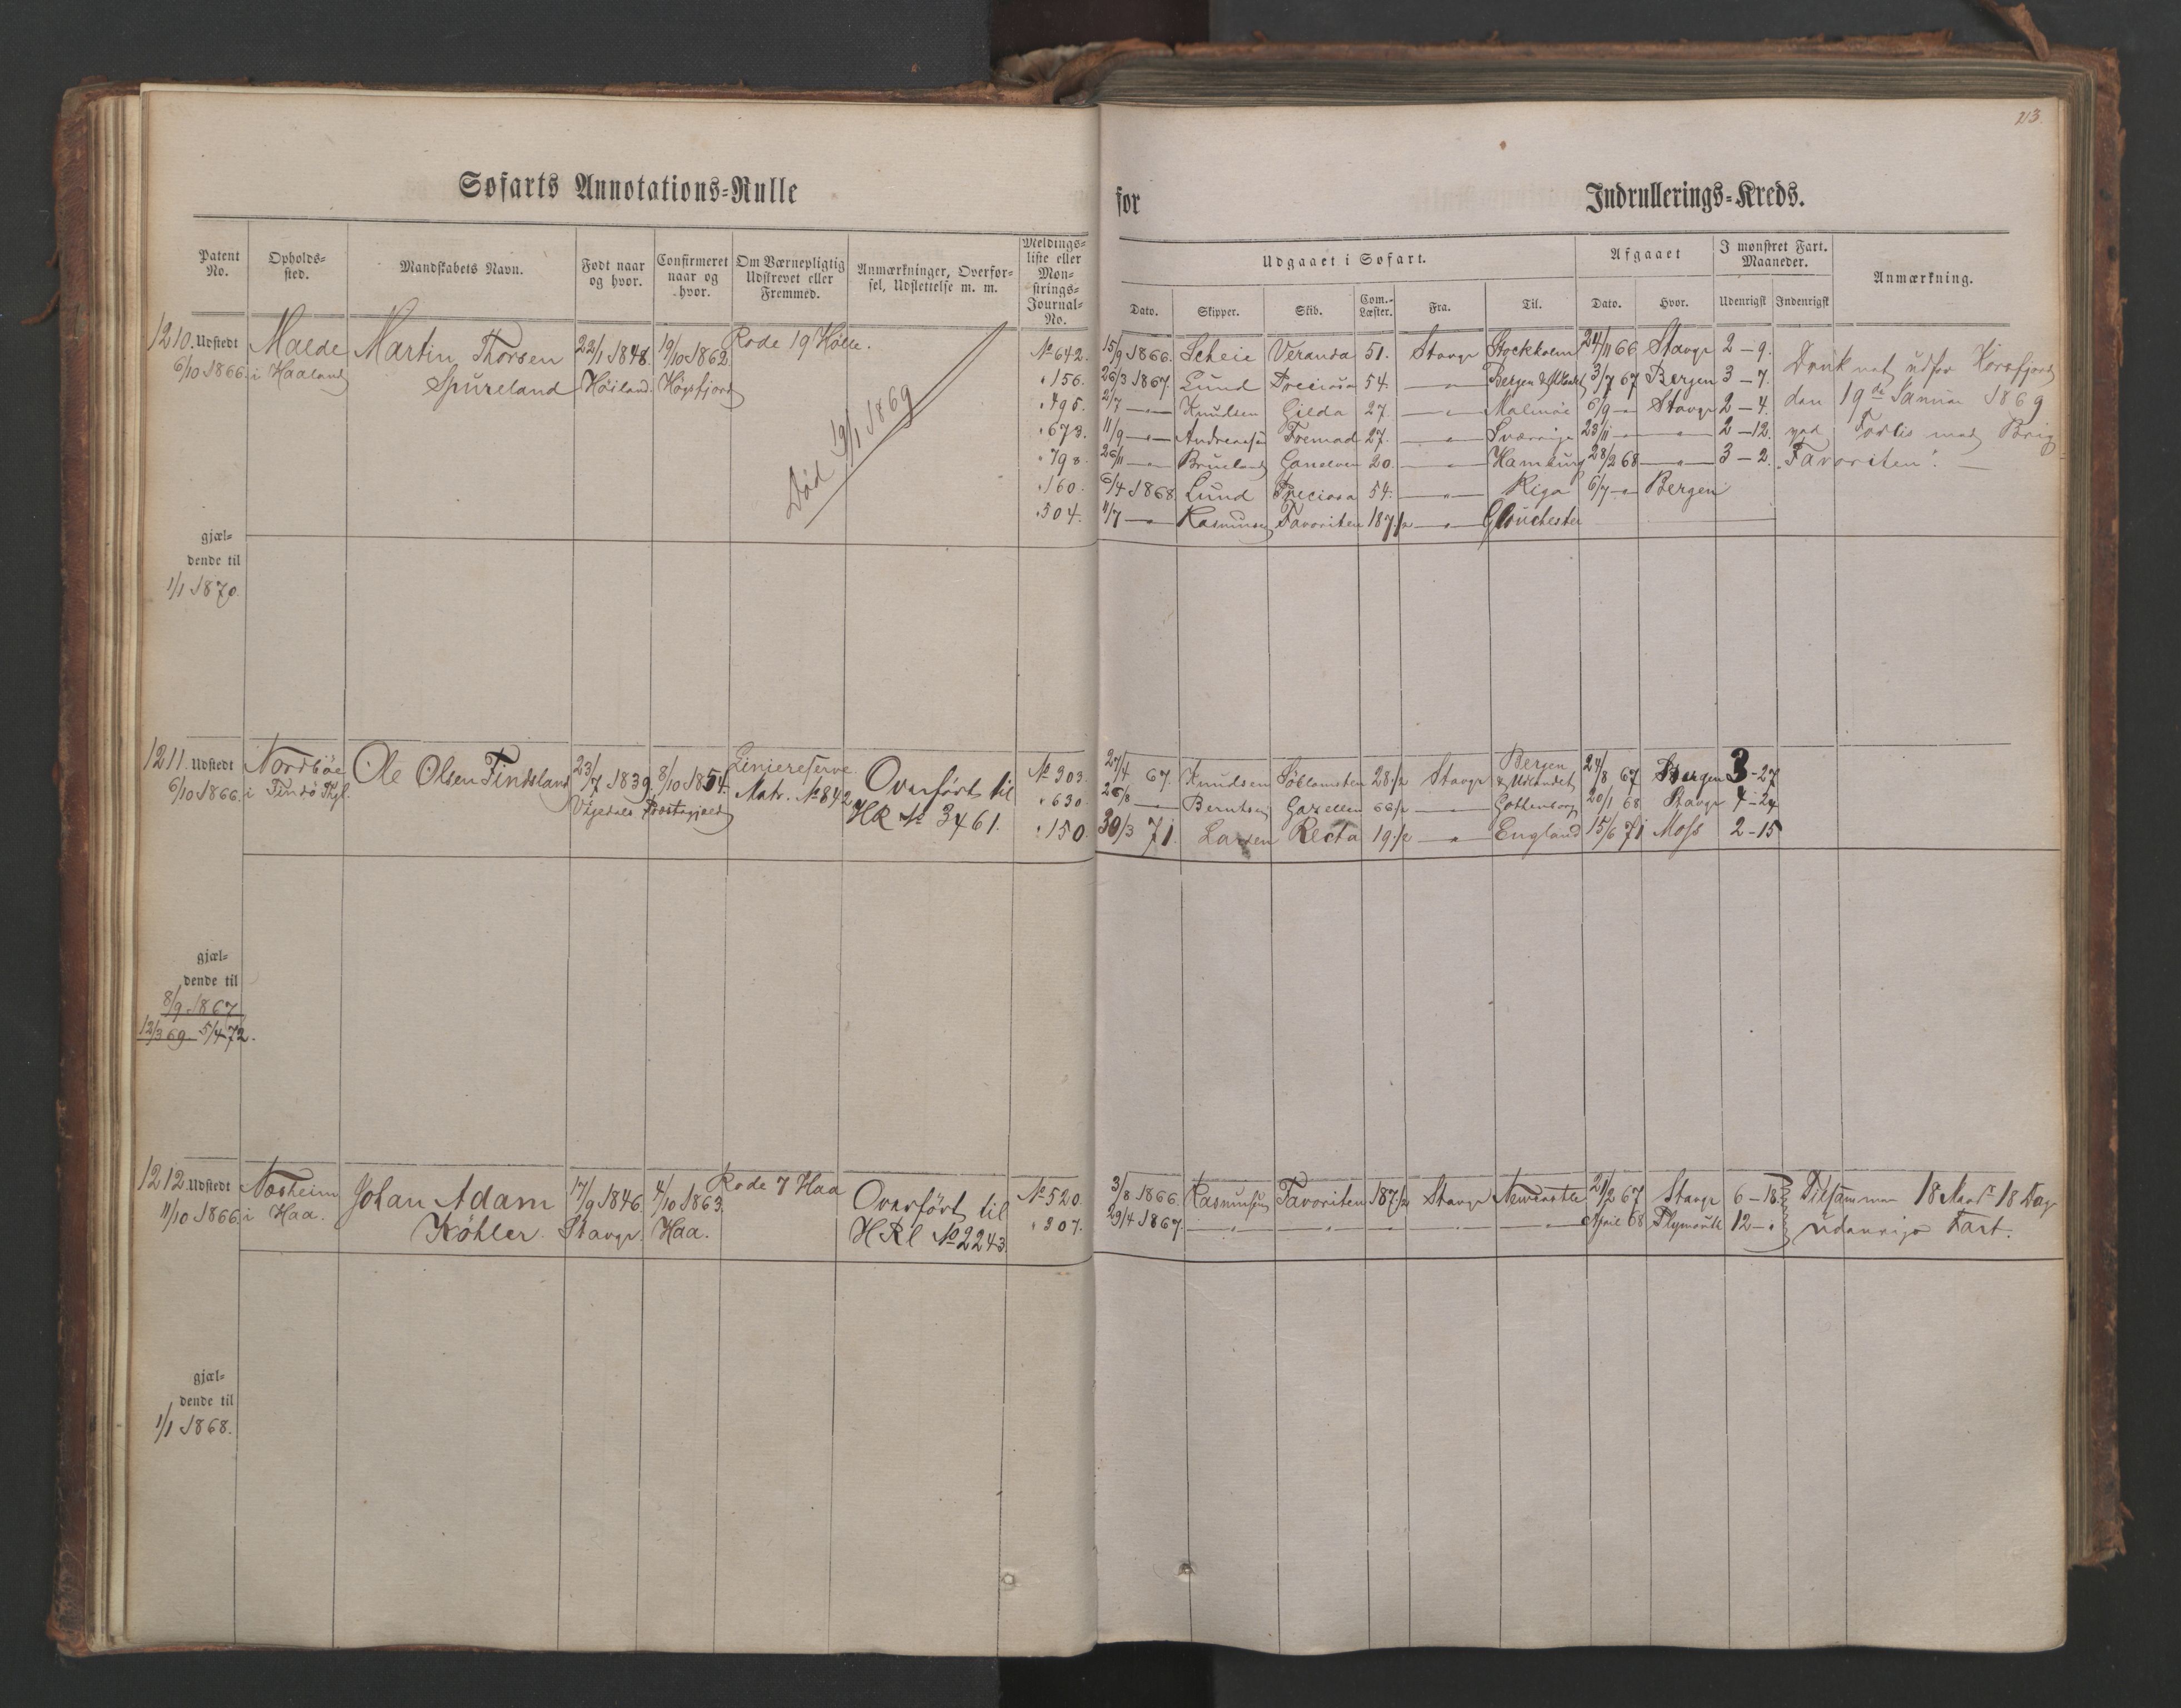 213.
Søfarts Annotations=Rulle
for Indrullerings=Kreds.
Patent No.
Opholds=sted.
Mandskabets Navn.
Født naar og hvor.
Confirmeret naar og hvor.
Om Værnepligtig Udskrevet eller Fremmed.
Anmærkninger, Overfør=sel, Udslettelse m. m.
Meldings=liste eller Møn=strings=Journal=No.
Udgaaet i Søfart.
Dato. Skipper. Skib. Com.=Læster. Fra. Til.
Afgaaet
Dato. Hvor.
I mønstret Fart. Maaneder.
Udenrigsk Indenrigsk
Anmærkning.
1210. Udstedt 6/10 1866.
Malde i Haaland
Martin Thorsen
Spureland
22/1 1848. Höiland.
19/10 1862. Högsfjord
Rode 19 Hölle.
Död 19/1 1869
No 642. 15/9 1866. Scheie Veranda 51. Stavgr Stockholm 24/11 66 Stavgr 2 – 9.
" 156. 26/3 1867. Lund Preciosa 54. —"— Bergen & Udlandet 3/7 67 Bergen 3 – 7.
" 495. 2/7 —"— Knudsen Gilda 27. —"— Malmøe 6/9 —"— Stavgr 2 – 4.
" 673. 11/9 —"— Andreasen Fremad 27. —"— Sverrige 23/11 —"— —"— 2 – 12.
" 798. 26/11 —"— Brueland 20. —"— Hamburg 28/2 68 —"— 3 – 2.
" 160. 6/4 1868 Lund Preciosa 54. —"— Riga 6/7 —"— Bergen
" 304. 11/7 —"— Rasmussen Favoriten 187 1/2 —"— Glouchester
Druknet udfor Korsfjord
den 19de Januar 1869
ved Forlis med Brig
"Favoriten".
gjæl=
dende til
1/1 1870.
1211. Udstedt 6/10 1866.
Nordböe i Findö Pgl.
Ole Olsen Findsland
23/7 1839. 8/10 1854.
Vigedals Præstegjæld
Liniereserve
Matr. No 842
Overfört til
HR No 3461.
No 303. 27/4 67. Knudsen Söblomsten 28 1/2 Stavgr Bergen & Udlandet 24/8 67 Bergen 3 - 27
" 630. 26/8 —"— Berntsen Gazellen 66 1/2 —"— Gothenborg 20/1 68 Stavgr 4 - 24
" 150. 30/3 71. Larsen Recta 19 1/2 —"— England 15/6 71 Moss 2 - 15
gjæl=
dende til
8/9 1867
12/3 69. 5/4 72.
1212 Udstedt 11/10 1866.
Nærheim i Haa.
Johan Adam
Köhler.
17/9 1846. Stavgr.
4/10 1863. Haa.
Rode 7 Haa
Overfört til
HRl No 2243.
No 520. 3/8 1866. Rasmussen Favoriten 187 1/2 Stavgr Newcastle 21/2 67 Stavgr 6 – 18
" 307. 29/4 1867. —"— —"— —"— —"— —"— April 68 Plymouth 12 – "
Tilsammen 18 Maar 18 Dage
udenrigs Fart.
gjæl=
dende til
1/1 1868.